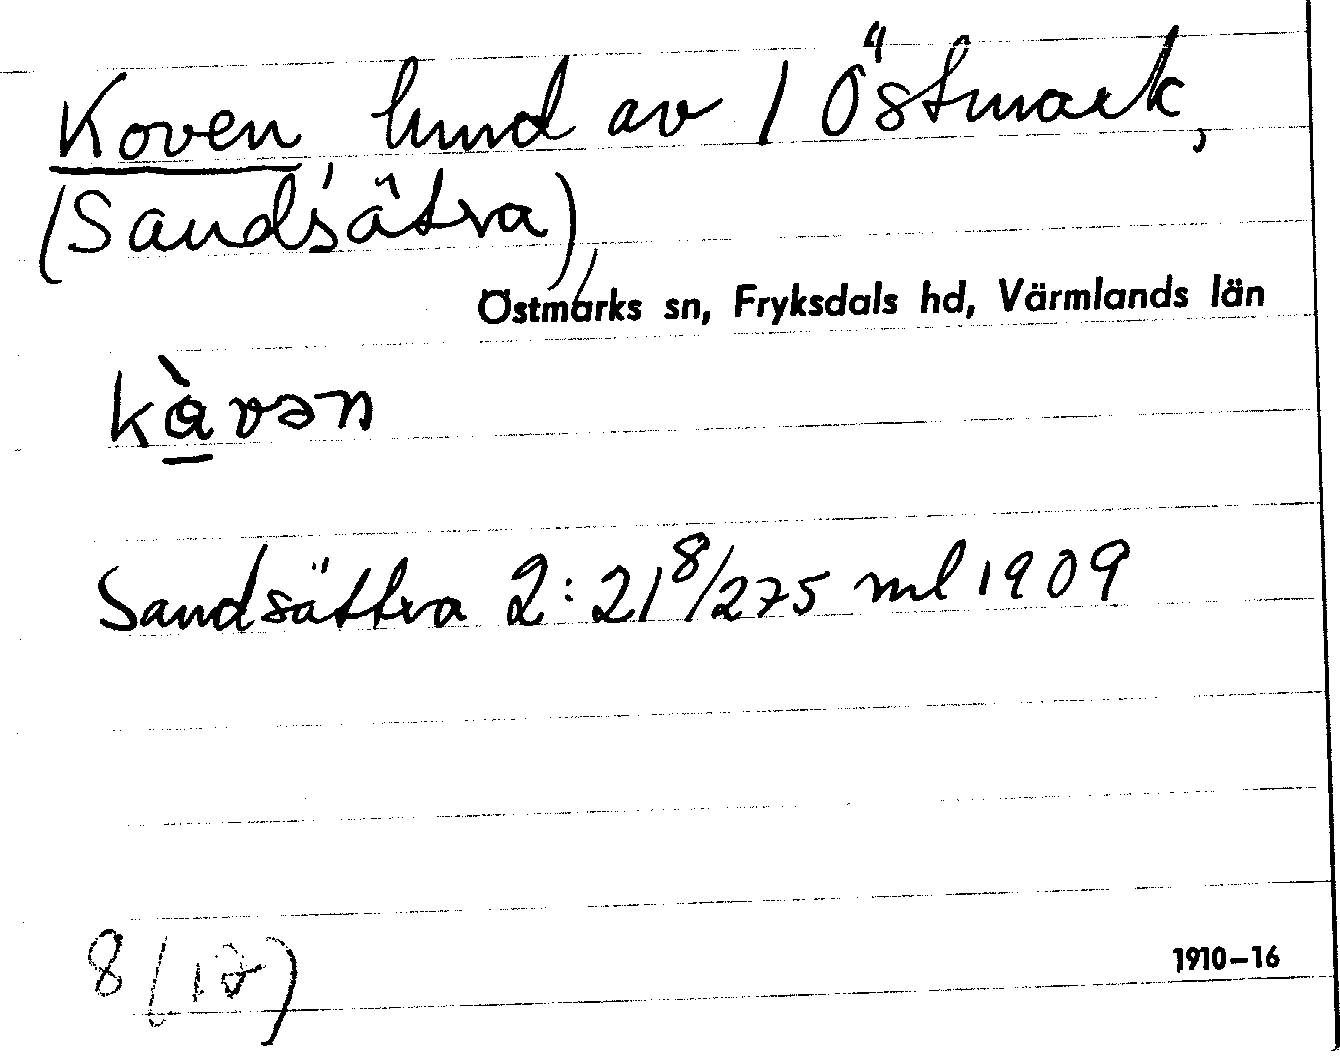 Koven, hmd av 1 Östmark,
(Sandsätra),
Östmarks sn, Fryksdals hd, Värmlands län
kàvən
Sandsättra 2:21 8/275 ml 1909
8 (17)
1910–16